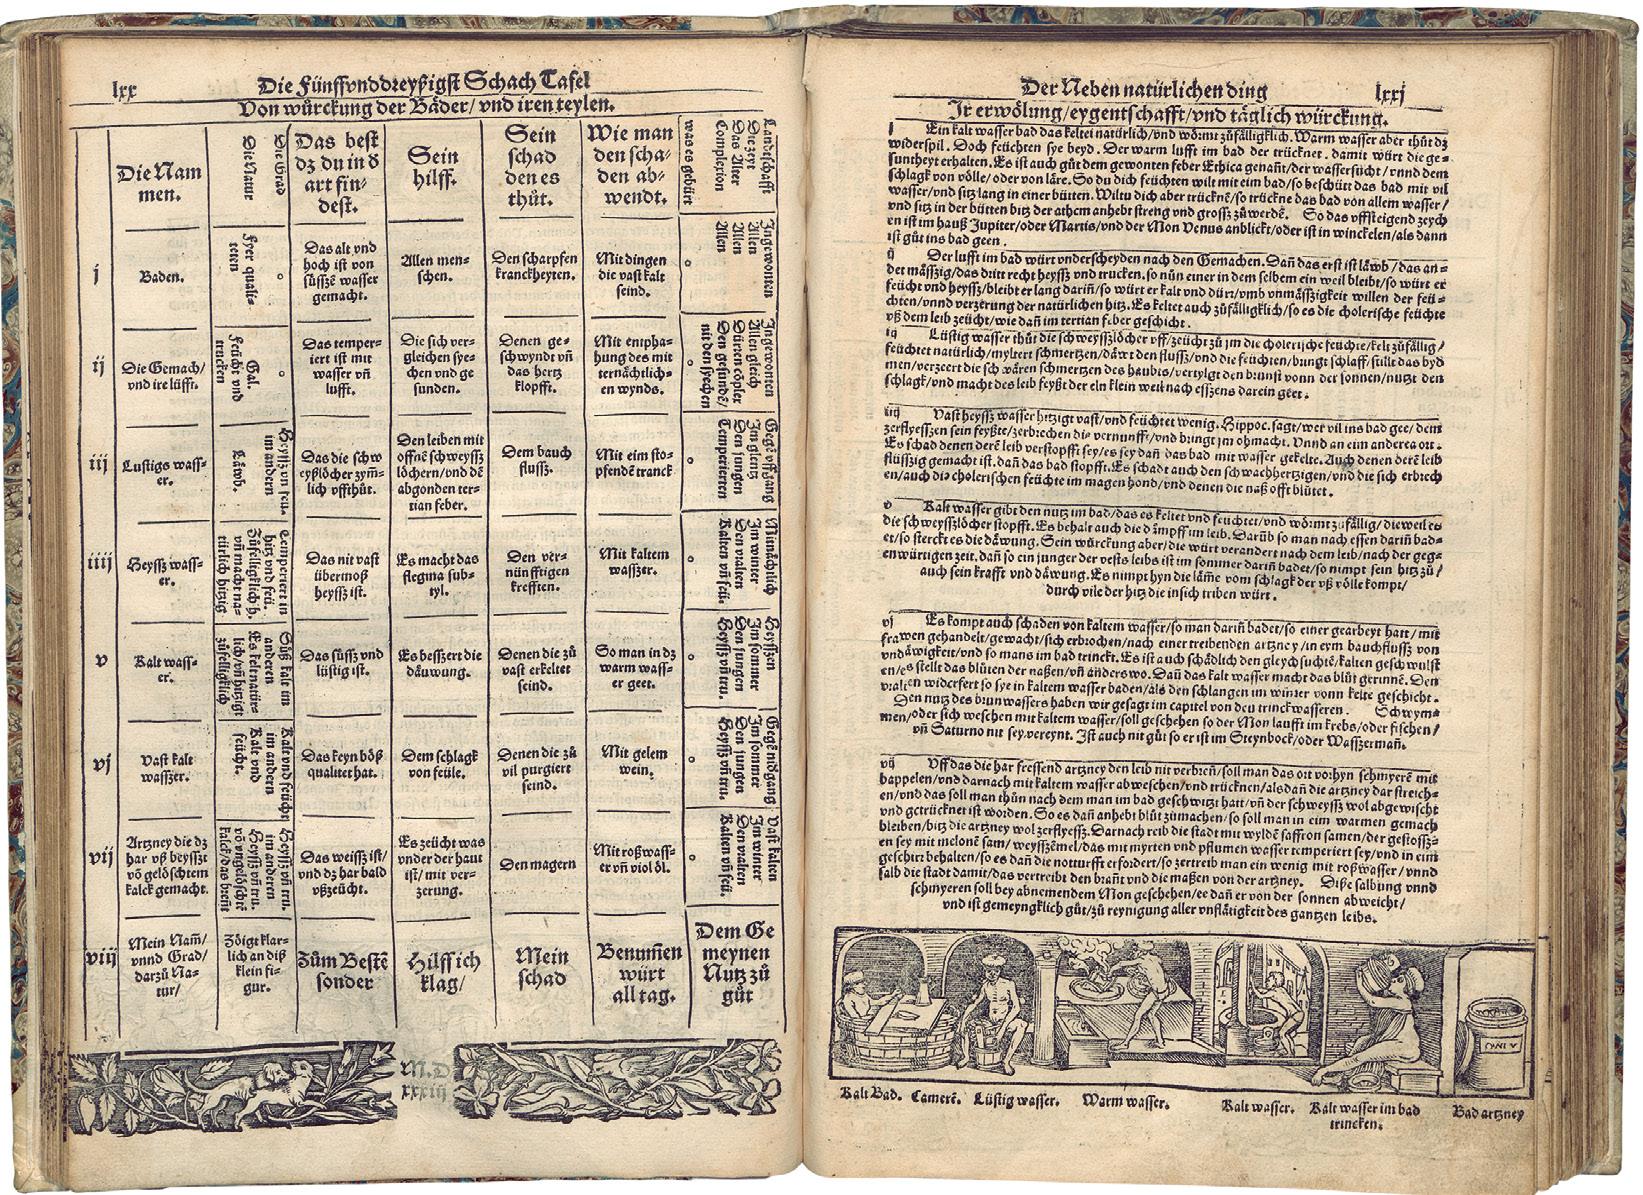 lxx
Die Fünffvnddreyßigst Schach Tafel
Von würckung der Bäder/ vnd iren teylen.
Die Nam
men.
Die Natur
Die Grad
Das best
dz du in d
art fin-
dest.
Sein
hilff.
Sein
schad
den es
thůt.
Wie man
den scha-
den ab-
wendt.
Landschafft
Die zeyt
Das Alter
Complexion
was es gebürt
j
Baden.
Fyer quali-
teten
Das alt vnd
hoch ist von
süssze wasser
gemacht.
Allen men-
schen.
Den scharpfen
kranckheyten.
Mit dingen
die vast kalt
seind.
Ingewonten
Allen
Allen
Allen
ij
Die Gemach/
vnd ire lüfft.
Gal.
Feücht vnd
trucken
Das temper-
iert ist mit
wasser vñ
lufft.
Die sich ver-
gleichen sye-
chen vnd ge
sunden.
Denen ge-
schwyndt vñ
das hertz
klopfft.
Mit empha-
hung des mit
ternächtlich-
en wynds.
Ingewonten
Allen gleich
Dürren cöpfler
Den gesundē/
nit den syechen
iij
Lustigs wass-
er.
Heyssz vñ feü.
im andern
Läwb.
Das die schw
eyßlöcher zym-
lich vffthůt.
Den leiben mit
offnē schweyssz
löchern/ vnd dē
abgonden ter-
tian feber.
Dem bauch
flussz.
Mit eim sto-
pfendē tranck
Gegē vffgang
Im glentz
Den jungen
Temperierten
iiij
Heyssz wass-
er.
Temperiert in
hitz vnd feü.
Zůfelligklich h.
vñ macht na-
türlich hitzig
Das nit vast
übermoß
heyssz ist.
Es macht das
flegma sub-
tyl.
Den ver-
nünfftigen
krefften.
Mit kaltem
wasszer.
Mitnächtlich
Im winter
Den vralten
Kalten vñ feü.
v
Kalt wass-
er.
Süß kalt im
anderen
Es kelt natür-
lich/ vñ hitzigt
zůfelligklich
Das süssz vnd
lüstig ist.
Es besszert die
däuwung.
Denen die zů
vast erkeltet
seind.
So man in dz
warm wass-
er geet.
Heysszen
Im sommer
Den jungen
Heyssz vñ tru.
vj
Vast kalt
wasszer.
Kalt vnd feücht
im andern
Kalt vnd
feücht.
Das keyn böß
qualitet hat.
Dem schlagk
von feüle.
Denen die zů
vil purgiert
seind.
Mit gelem
wein.
Gegē nidgang
Im sommer
Den jungen
Heyssz vñ tru.
vij
Artzney die dz
har vß beysszt
võ gelöschtem
kalck gemacht.
Heyssz vñ tru.
im anderen
Heyssz vñ tru.
võ vngelöschtē
kalck/ das brent
Das weissz ist/
vnd dz har bald
vßzeücht.
Es zeücht was
vnder der haut
ist/ mit ver-
zerung.
Den magern
Mit roßwass-
er vñ viol öl.
Vast kalten
Im winter
Den vralten
Kalten vñ feü.
viij
Mein Nam̃/
vnnd Grad/
darzů Na-
tur/
Zöigt klar-
lich an diß
klein fi-
gur.
Zům Bestē
sonder
Hilff ich
klag/
Mein
schad
Benum̃en
würt
all tag.
Dem Ge
meynen
Nutz zů
gůt
M.D
xxxiij
Der Neben natürlichen ding
lxxj
Ir erwölung/ eygentschafft/ vnd täglich würckung.
j Ein kalt wasser bad das keltet natürlich/ vnd wörmt zůfälligklich. Warm wasser aber thůt dz
widerspil. Doch feüchten sye beyd. Der warm lufft im bad der trücknet. damit würt die ge-
suntheyt erhalten. Es ist auch gůt dem gewonten feber Ethica genañt/ der wassersucht/ vnnd dem
schlagk von völle/ oder von läre. So du dich feüchten wilt mit eim bad/ so beschütt das bad mit vil
wasser/ vnd sitz lang in einer bütten. Wiltu dich aber trücknē/ so trückne das bad von allem wasser/
vnd sitz in der bütten bitz der athem anhebt streng vnd grossz zů werdē. So das vffsteigend zeych
en ist im hauß Jupiter/ oder Martis/ vnd der Mon Venus anblickt/ oder ist in winckelen/ als dann
ist gůt ins bad geen.
ij Der lufft im bad würt vnderscheyden nach den Gemachen. Dañ das erst ist läwb/ das an-
det mässzig/ das dritt recht heyssz vnd trucken. so nün einer in dem selbem ein weil bleibt/ so würt er
feücht vnd heyssz/ bleibt er lang dariñ/ so würt er kalt vnd dürr/ vmb vnmässzigkeit willen der feü-
chten/ vnnd verzerung der natürlichen hitz. Es keltet auch zůfälligklich/ so es die cholerische feüchte
vß dem leib zeücht/ wie dañ im tertian feber geschicht.
iij Lüstig wasser thůt die schweysszlöcher vff/ zeücht zů jm die cholerische feüchte/ kelt zůfällig/
feüchtet natürlich/ myltert schmertzen/ däwt den flussz/ vnd die feüchten/ bringt schlaff/ füllt das byd
men/ verzeert die schwären schmertzen des haubts/ vertylgt den brunst vonn der sonnen/ nutzt den
schlagk/ vnd macht des leib feyßt der eln klein weil nach esszens darein geet.
iiij Vast heyssz wasser hitzigt vast/ vnd feüchtet wenig. Hippoc. sagt/ wer vil ins bad gee/ dem
zerflyesszen sein feyßte/ zerbrechen die vernunfft/ vnd bringt jm ohmacht. Vnnd an eim anderen ort.
Es schad denen derē leib verstopfft sey/ es sey dañ das bad mit wasser gekelte. Auch denen derē leib
flüsszig gemacht ist. dañ das bad stopfft. Es schadt auch den schwachhertzigen/ vnd die sich erbrech
en/ auch die cholerischen feüchte im magen hond/ vnd denen die naß offt blütet.
v Kalt wasser gibt den nutz im bad/ das es keltet vnd feüchtet/ vnd wörmt zufällig/ dieweil es
die schweysszlöcher stopfft. Es behalt auch die dämpff im leib. Darüb so man nach essen dariñ bad-
et/ so sterckt es die däwung. Sein würckung aber/ die würt verandert nach dem leib/ nach der geg-
enwürtigen zeit. dañ so ein junger der vests leibs ist im sommer dariñ badet/ so nimpt sein hitz zů/
auch sein krafft vnd däwung. Es nimpt hyn die läm̃e vom schlagk der vß völle kompt/
durch vile der hitz die in sich triben würt.
vj Es kompt auch schaden von kaltem wasser/ so man dariñ badet/ so einer gearbeyt hatt/ mit
frawen gehandelt/ gewacht/ sich erbrochen/ nach einer treibenden artzney/ in eym bauchflussz von
vndäwigkeit/ vnd so mans im bad trinckt. Es ist auch schädlich den gleychsuchtē/ kalten geschwulst
en/ es stellt das blüten der naßen/ vñ anderswo. Dañ das kalt wasser macht das blůt gerinnē. Den
vralten widerfert so sye in kaltem wasser baden/ als den schlangen im winter vonn kelte geschicht.
Den nutz des brunwassers haben wir gesagt im capitel von den trinckwasseren. Schwym-
men/ oder sich weschen mit kaltem wasser/ soll geschehen so der Mon laufft im krebs/ oder fischen/
vñ Saturno nit sey vereynt. Ist auch nit gůt so er ist im Steynbock/ oder Wasszermañ.
vij Uff das die har fressend artzney den leib nit verbreñ/ soll man das ort vorhyn schmyerē mit
bappelen/ vnd darnach mit kaltem wasser abweschen/ vnd trücknen/ als dañ die artzney dar streich-
en/ vnd das soll man thůn nach dem man im bad geschwitzt hatt/ vñ der schweyssz wol abgewischt
vnd getrücknet ist worden. So es dañ anhebt blůt zů machen/ so soll man in eim warmen gemach
bleiben/ bitz die artzney wol zerflyessz. Darnach reib die stadt mit wyldē saffron samen/ der gestossz-
en sey mit melonē sam/ weysszēmel/ das mit myrten vnd pflumen wasser temperiert sey/ vnd in eim
geschirr behalten/ so es dañ die notturfft erfordert/ so zertreib man ein wenig mit roßwasser/ vnnd
salb die stadt damit/ das vertreibt den brañt vnd die maßen von der artzney. Diße salbung vnnd
schmyeren soll bey abnemendem Mon geschehen/ ee dañ er von der sonnen abweicht/
vnd ist gemeyngklich gůt/ zů reynigung aller vnflätigkeit des gantzen leibs.
Kalt Bad. Camerē. Lüstig wasser. Warm wasser. Kalt wasser. Kalt wasser im bad
trincken.
Bad artzney